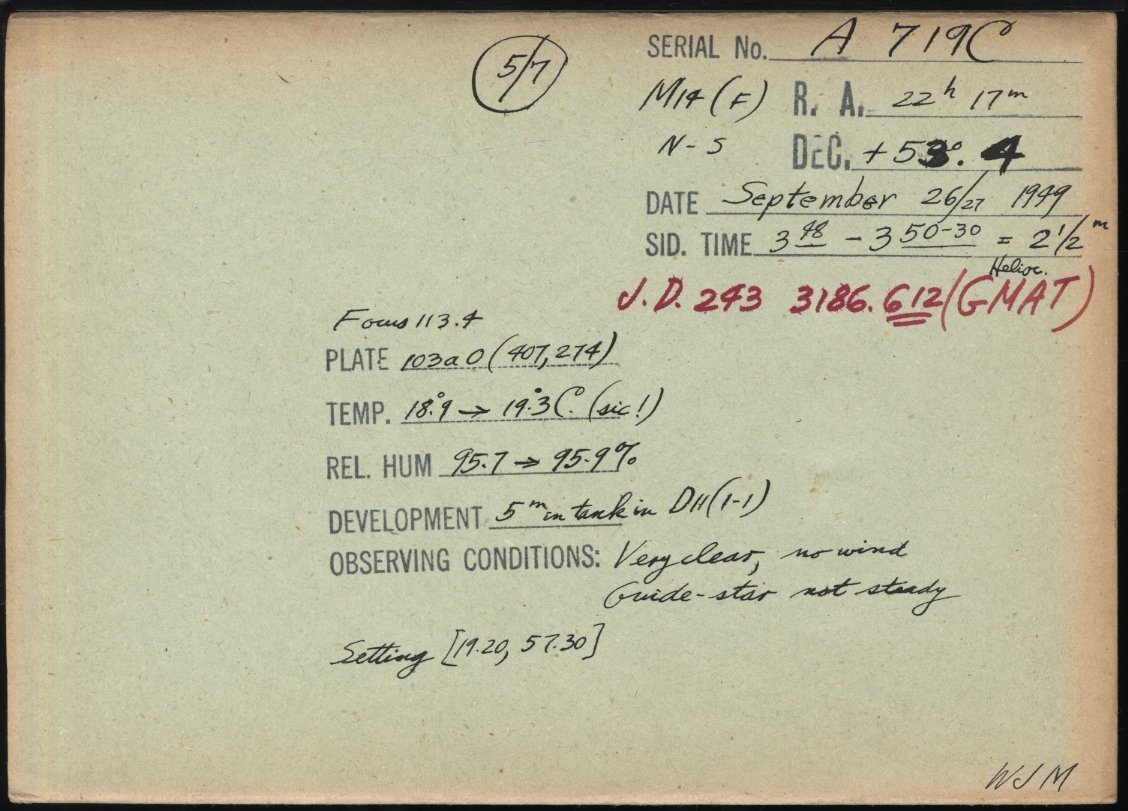 5/7
SERIAL No. A 719C
M14 (F) R. A. 22ʰ 17ᵐ
N-S DEC. +53°.4
DATE September 26/27 1949
SID. TIME 3 48 - 3 50-30 = 2 1/2 ᵐ
Helioc.
J.D. 243 3186.612 (GMAT)
Focus 113.4
PLATE 103a O (407,274)
TEMP. 18°.9 → 19°.3 C. (sic!)
REL. HUM 95.7 → 95.9%
DEVELOPMENT 5ᵐ in tank in D11 (1-1)
OBSERVING CONDITIONS: Very clear, no wind
Guide-star not steady
Setting [19.20, 57.30]
WJM